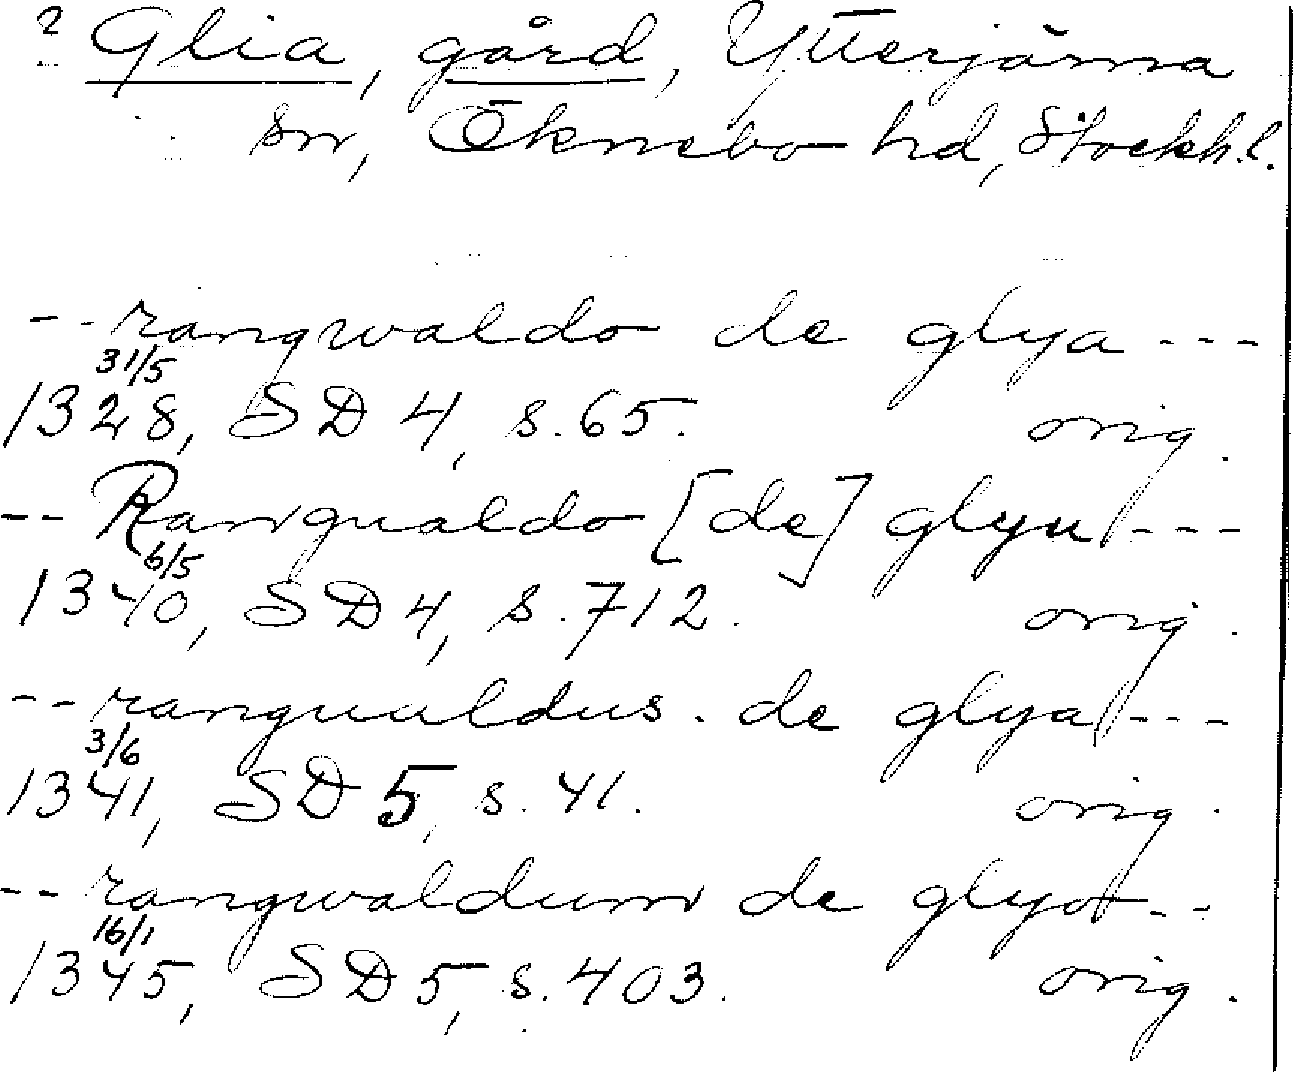 ? Glia, gård, Ytterjärna
sn, Öknebo hd, Stockh.l.
-- rangwaldo de glya ---
31/5
1328, SD 4, s. 65. orig.
-- Rangualdo [de] glyu ---
6/5
1340, SD 4, s. 712. orig.
-- rangualdus. de glya ---
3/6
1341, SD 5, s. 41. orig.
-- rangwaldum de glya --
16/1
1345, SD 5, s. 403. orig.